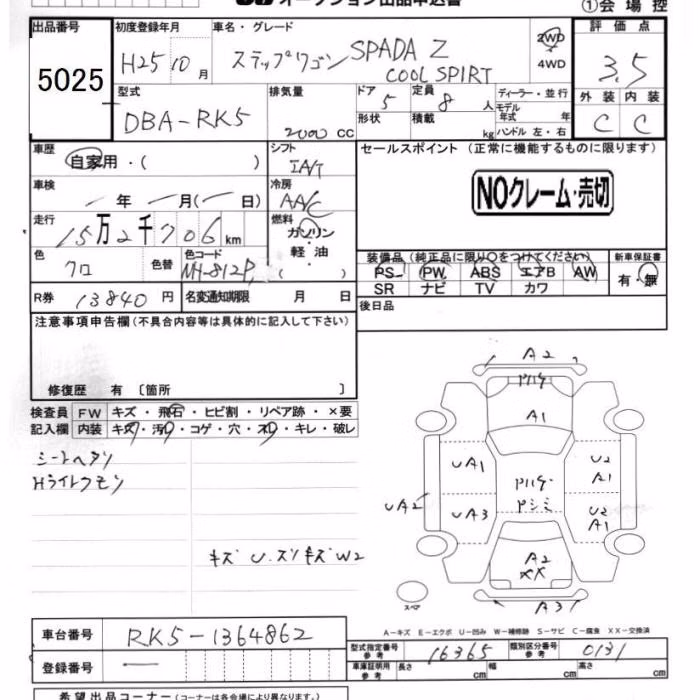 オークション出品申込書
①会場控
出品番号
5025
初度登録年月
H25 10月
車名・グレード
ステップワゴン SPADA Z
COOL SPIRT
2WD
4WD
評価点
3.5
型式
DBA-RK5
排気量
2000 CC
ドア
5
定員
8 人
形状
積載
kg
ディーラー・並行
モデル年式 年
ハンドル 左・右
外装 内装
C C
車歴
自家用・( )
シフト
IAT
セールスポイント (正常に機能するものに限ります)
NOクレーム・売切
車検
年 月( 日)
冷房
AAC
走行
15万2千706km
燃料
ガソリン
・
軽油
( )
色
クロ
色替
色コード
NH-812P
装備品 (純正品に限り○をつけてください)
PS PW ABS エアB AW
SR ナビ TV カワ
新車保証書
有・無
R券 13840円
名変通知期限 月 日
後日品
注意事項申告欄 (不具合内容等は具体的に記入して下さい)
修復歴 有 〔箇所 〕
検査員 FW キズ・飛石・ヒビ割・リペア跡・×要
記入欄 内装 キズ・汚・コゲ・穴・スレ・キレ・破レ
シートヘタリ
Hライトクモリ
キズ U.スリキズ W2
A2
A1
UA1
U2
A1
UA2
UA3
U2
A1
A2
XX
A3
スペア
A-キズ E-エクボ U-凹み W-補修跡 S-サビ C-腐食 XX-交換済
車台番号 RK5-1364862
登録番号 —
型式指定番号 参考 16365
類別区分番号 参考 0131
車庫証明用 参考 長さ cm 幅 cm 高さ cm
希望出品コーナー (コーナーは各会場により異なります。)